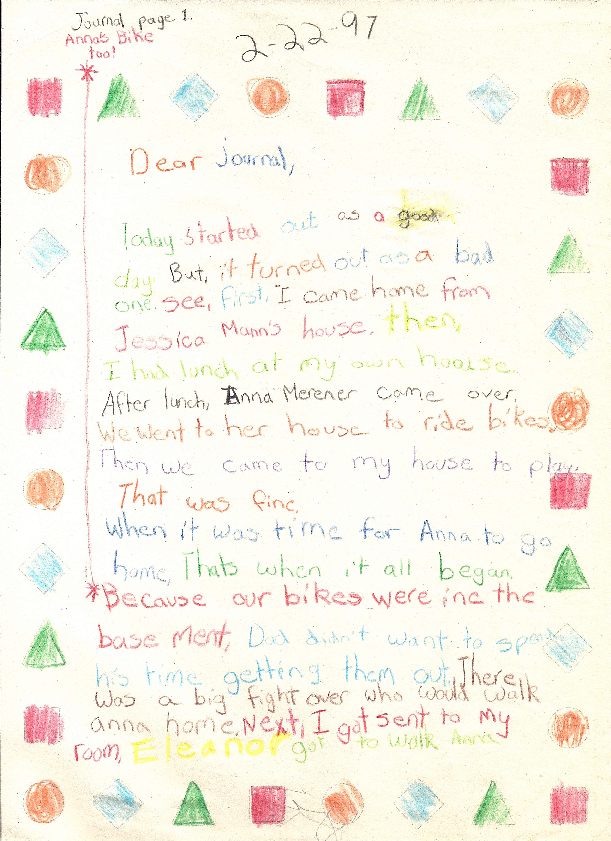 Journal page 1.
Anna's Bike
too!
2-22-97
Dear Journal,
Today started out as a good
day. But, it turned out as a bad
one. see, first, I came home from
Jessica Mann's house. then,
I had lunch at my own house.
After lunch, Anna Merener came over.
We went to her house to ride bikes.
Then we came to my house to play.
That was fine.
When it was time for Anna to go
home, Thats when it all began.
*Because our bikes were ine the
base ment, Dad didn't want to spend
his time getting them out. There
was a big fight over who would walk
anna home. Next, I got sent to my
room, Eleanor got to walk Anna